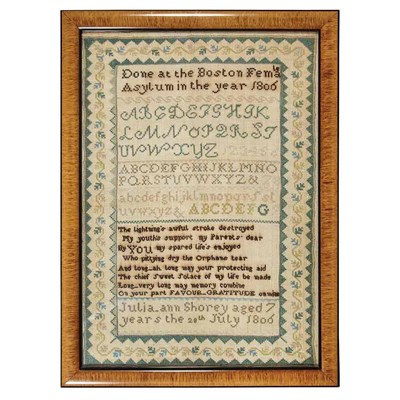 Done at the Boston Female
Asylum in the year 1806
ABCDEFGHIK
LMNOPQRST
UVWXYZ 123456
ABCDEFGHIJKLMNO
PQRSTUVWXYZ&
abcdefghijklmnopqrst
uvwxyz& ABCDEFG
The lightning's awful stroke destroyed
My youth's support my Parents dear
By YOU my spared life's enjoyed
Who pitying dry the Orphans tear
And long_ah long may your protecting aid
The chief Sweet Solace of my life be made
Long_very long may memory combine
On your part FAVOUR_GRATITUDE on mine
Julia_ann Shorey aged 7
years the 28th July 1806